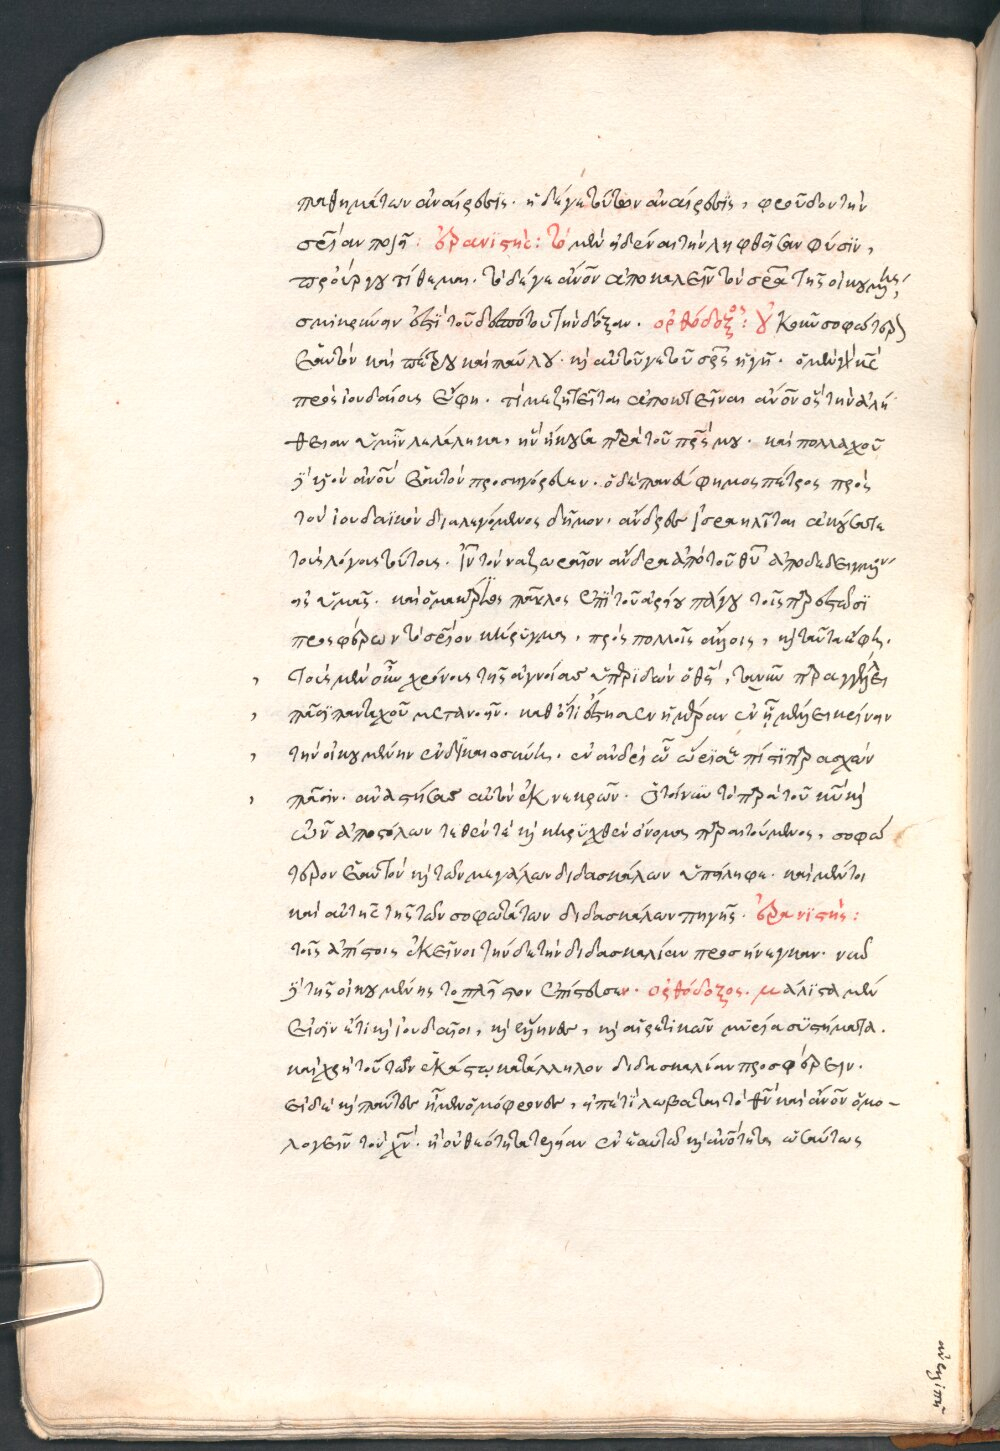 παθημάτων ἀναίρεσις. ἡ δέ γε τούτων ἀναίρεσις, φροῦδον τὴν
σρίαν ποιεῖ. ἐρανιστής: Τὸ μὲν εἰδέναι τὴν ληφθεῖσαν φύσιν,
προύργου τίθεμαι. τὸ δέ γε ἄνον ἀποκαλεῖν τὸν σρα τῆς οἰκουμένης,
σμικρύνειν ἐστὶ τοῦ δεσπότου τὴν δόξαν. ὀρθόδοξος: Οὐκοῦν σοφώτερον
σεαυτὸν καὶ πέτρου καὶ παύλου. καὶ αὐτοῦ γε τοῦ σρς ἡγῇ. ὁ μὲν γὰρ κς
πρὸς ἰουδαίους ἔφη. τί με ζητεῖτε ἀποκτεῖναι ἄνον ὃς τὴν ἀλή
θειαν ὑμῖν λελάληκα, ἣν ἤκουσα παρὰ τοῦ πρς μου. καὶ πολλαχοῦ
υἱὸν ἀνου ἑαυτὸν προσηγόρευεν. ὁ δὲ πανεύφημος πέτρος πρὸς
τὸν ἰουδαϊκὸν διαλεγόμενος δῆμον. ἄνδρες ἰσραηλῖται ἀκούσατε
τοὺς λόγους τούτους. ιν τὸν ναζωραῖον ἄνδρα ἀπὸ τοῦ θυ ἀποδεδειγμένον
εἰς ὑμᾶς. καὶ ὁ μακάριος παῦλος ἐπὶ τοῦ ἀρείου πάγου τοῖς παρεστῶσι
προσφέρων τὸ σριον κήρυγμα, πρὸς πολλοῖς ἄλλοις, καὶ ταῦτα ἔφη.
τοὺς μὲν οὖν χρόνους τῆς ἀγνοίας ὑπεριδὼν ὁ θς, τανῦν παραγγέλλει
πᾶσι πανταχοῦ μετανοεῖν. καθότι ἔστησεν ἡμέραν ἐν ᾗ μέλλει κρίνειν
τὴν οἰκουμένην ἐν δικαιοσύνῃ. ἐν ἀνδρὶ ᾧ ὥρισε πίστιν παρασχὼν
πᾶσιν. ἀναστήσας αὐτὸν ἐκ νεκρῶν. ὁ τοίνυν τὸ παρὰ τοῦ κυ καὶ
τῶν ἀποστόλων τεθέν τε καὶ κηρυχθὲν ὄνομα παραιτούμενος, σοφώ
τερον ἑαυτὸν καὶ τῶν μεγάλων διδασκάλων ὑπείληφε. καὶ μέντοι
καὶ αὐτῆς τῆς τῶν σοφωτάτων διδασκάλων πηγῆς. ἐρανιστής:
τοῖς ἀπίστοις ἐκεῖνοι τήνδε τὴν διδασκαλίαν προσήνεγκαν. νῦν
δὲ τῆς οἰκουμένης τὸ πλεῖστον ἐπίστευσεν. ὀρθόδοξος. μάλιστα μὲν
εἰσὶν ἔτι καὶ ἰουδαῖοι, καὶ ἕλληνες, καὶ αἱρετικῶν μυρία συστήματα.
καὶ χρὴ τούτων ἑκάστῳ κατάλληλον διδασκαλίαν προσφέρειν.
εἰ δὲ καὶ πάντες ἦμεν ὁμόφρονες, τί ποτε λωβᾶται τὸ θν καὶ ἄνον ὁμο-
λογεῖν τὸν χν. ἢ οὐ θεότητα τελείαν ἐν ἑαυτῷ καὶ ἀνότητα ὡσαύτως